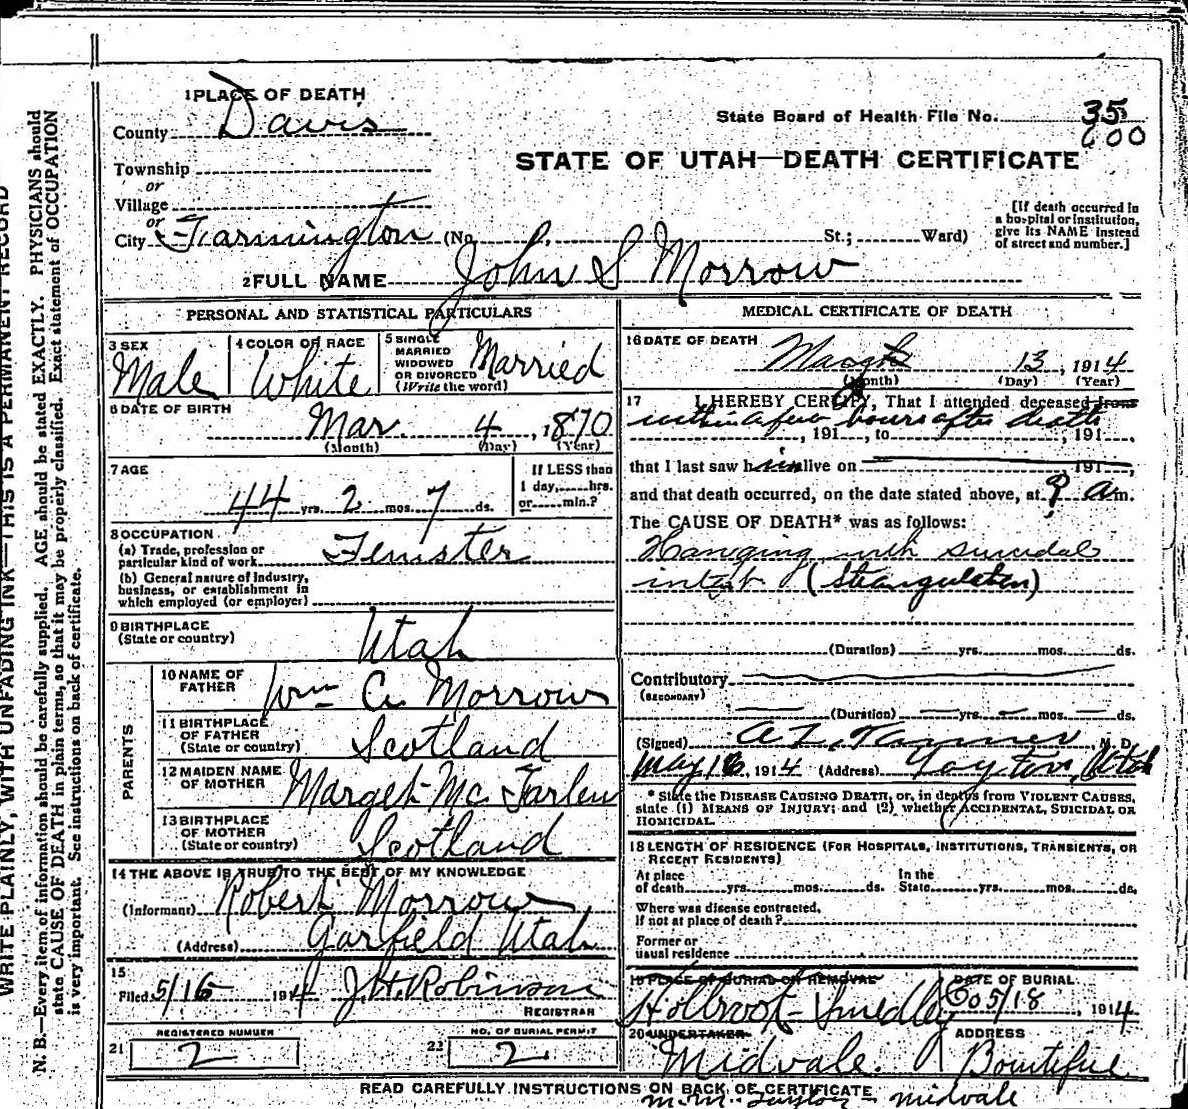 WRITE PLAINLY, WITH UNFADING INK—THIS IS A PERMANENT RECORD
N. B.—Every item of information should be carefully supplied. AGE should be stated EXACTLY. PHYSICIANS should
state CAUSE OF DEATH in plain terms, so that it may be properly classified. Exact statement of OCCUPATION
is very important. See instructions on back of certificate.
1 PLACE OF DEATH
County Davis
State Board of Health File No. 35
600
STATE OF UTAH—DEATH CERTIFICATE
Township
or
Village
or
City Farmington (No. St.; Ward)
[If death occurred in
a hospital or institution,
give its NAME instead
of street and number.]
2 FULL NAME John S Morrow
PERSONAL AND STATISTICAL PARTICULARS
3 SEX
Male
4 COLOR OR RACE
White
5 SINGLE
MARRIED
WIDOWED
OR DIVORCED
(Write the word)
Married
6 DATE OF BIRTH
Mar. 4, 1870
(Month) (Day) (Year)
7 AGE
44 yrs. 2 mos. 7 ds.
If LESS than
1 day, hrs.
or min.?
8 OCCUPATION
(a) Trade, profession or
particular kind of work Temster
(b) General nature of Industry,
business, or establishment in
which employed (or employer)
9 BIRTHPLACE
(State or country) Utah
PARENTS
10 NAME OF
FATHER Wm G. Morrow
11 BIRTHPLACE
OF FATHER
(State or country) Scotland
12 MAIDEN NAME
OF MOTHER Marget Mc Farlen
13 BIRTHPLACE
OF MOTHER
(State or country) Scotland
14 THE ABOVE IS TRUE TO THE BEST OF MY KNOWLEDGE
(Informant) Robert Morrow
(Address) Garfield Utah
15
Filed 5/16 1914 J.H. Robinson
REGISTRAR
REGISTERED NUMBER
21 2
NO. OF BURIAL PERMIT
22 2
MEDICAL CERTIFICATE OF DEATH
16 DATE OF DEATH
13, 1914
(Month) (Day) (Year)
17 I HEREBY CERTIFY, That I attended deceased from
within a few hours after death
, 191 , to , 191 ,
that I last saw him alive on 191 ,
and that death occurred, on the date stated above, at 9 a m.
The CAUSE OF DEATH* was as follows:
Hanging with suicidal
intent (Strangulation)
(Duration) yrs. mos. ds.
Contributory
(SECONDARY)
(Duration) yrs. mos. ds.
(Signed) M. D.
May 16, 1914 (Address) Layton, Utah
* State the DISEASE CAUSING DEATH, or, in deaths from VIOLENT CAUSES,
state (1) MEANS OF INJURY; and (2) whether ACCIDENTAL, SUICIDAL OR
HOMICIDAL.
18 LENGTH OF RESIDENCE (FOR HOSPITALS, INSTITUTIONS, TRANSIENTS, OR
RECENT RESIDENTS)
At place
of death yrs. mos. ds.
In the
State yrs. mos. ds.
Where was disease contracted,
if not at place of death?
Former or
usual residence
19 PLACE OF BURIAL OR REMOVAL
DATE OF BURIAL
Holbrook-Smedley Co 5/18 1914
20 UNDERTAKER
ADDRESS
Midvale. Bountiful
READ CAREFULLY INSTRUCTIONS ON BACK OF CERTIFICATE
midvale